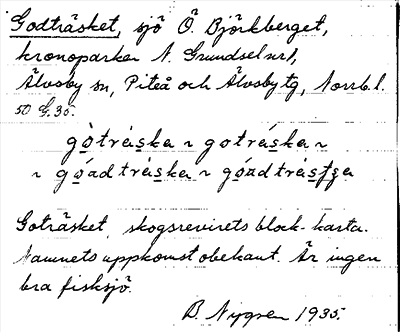 Godträsket, sjö Ö. Björkberget,
kronoparken N. Grundsel nr 1,
Älvsby sn, Piteå och Älvsby tg, Norrb. l.
50 G. 35.
gòtràska ~ gotráska ~
~ góadtràska ~ góadtràsʄʂa
Goträsket, skogsrevirets block-karta.
Namnets uppkomst obekant. Är ingen
bra fisksjö.
B. Nygren 1935.